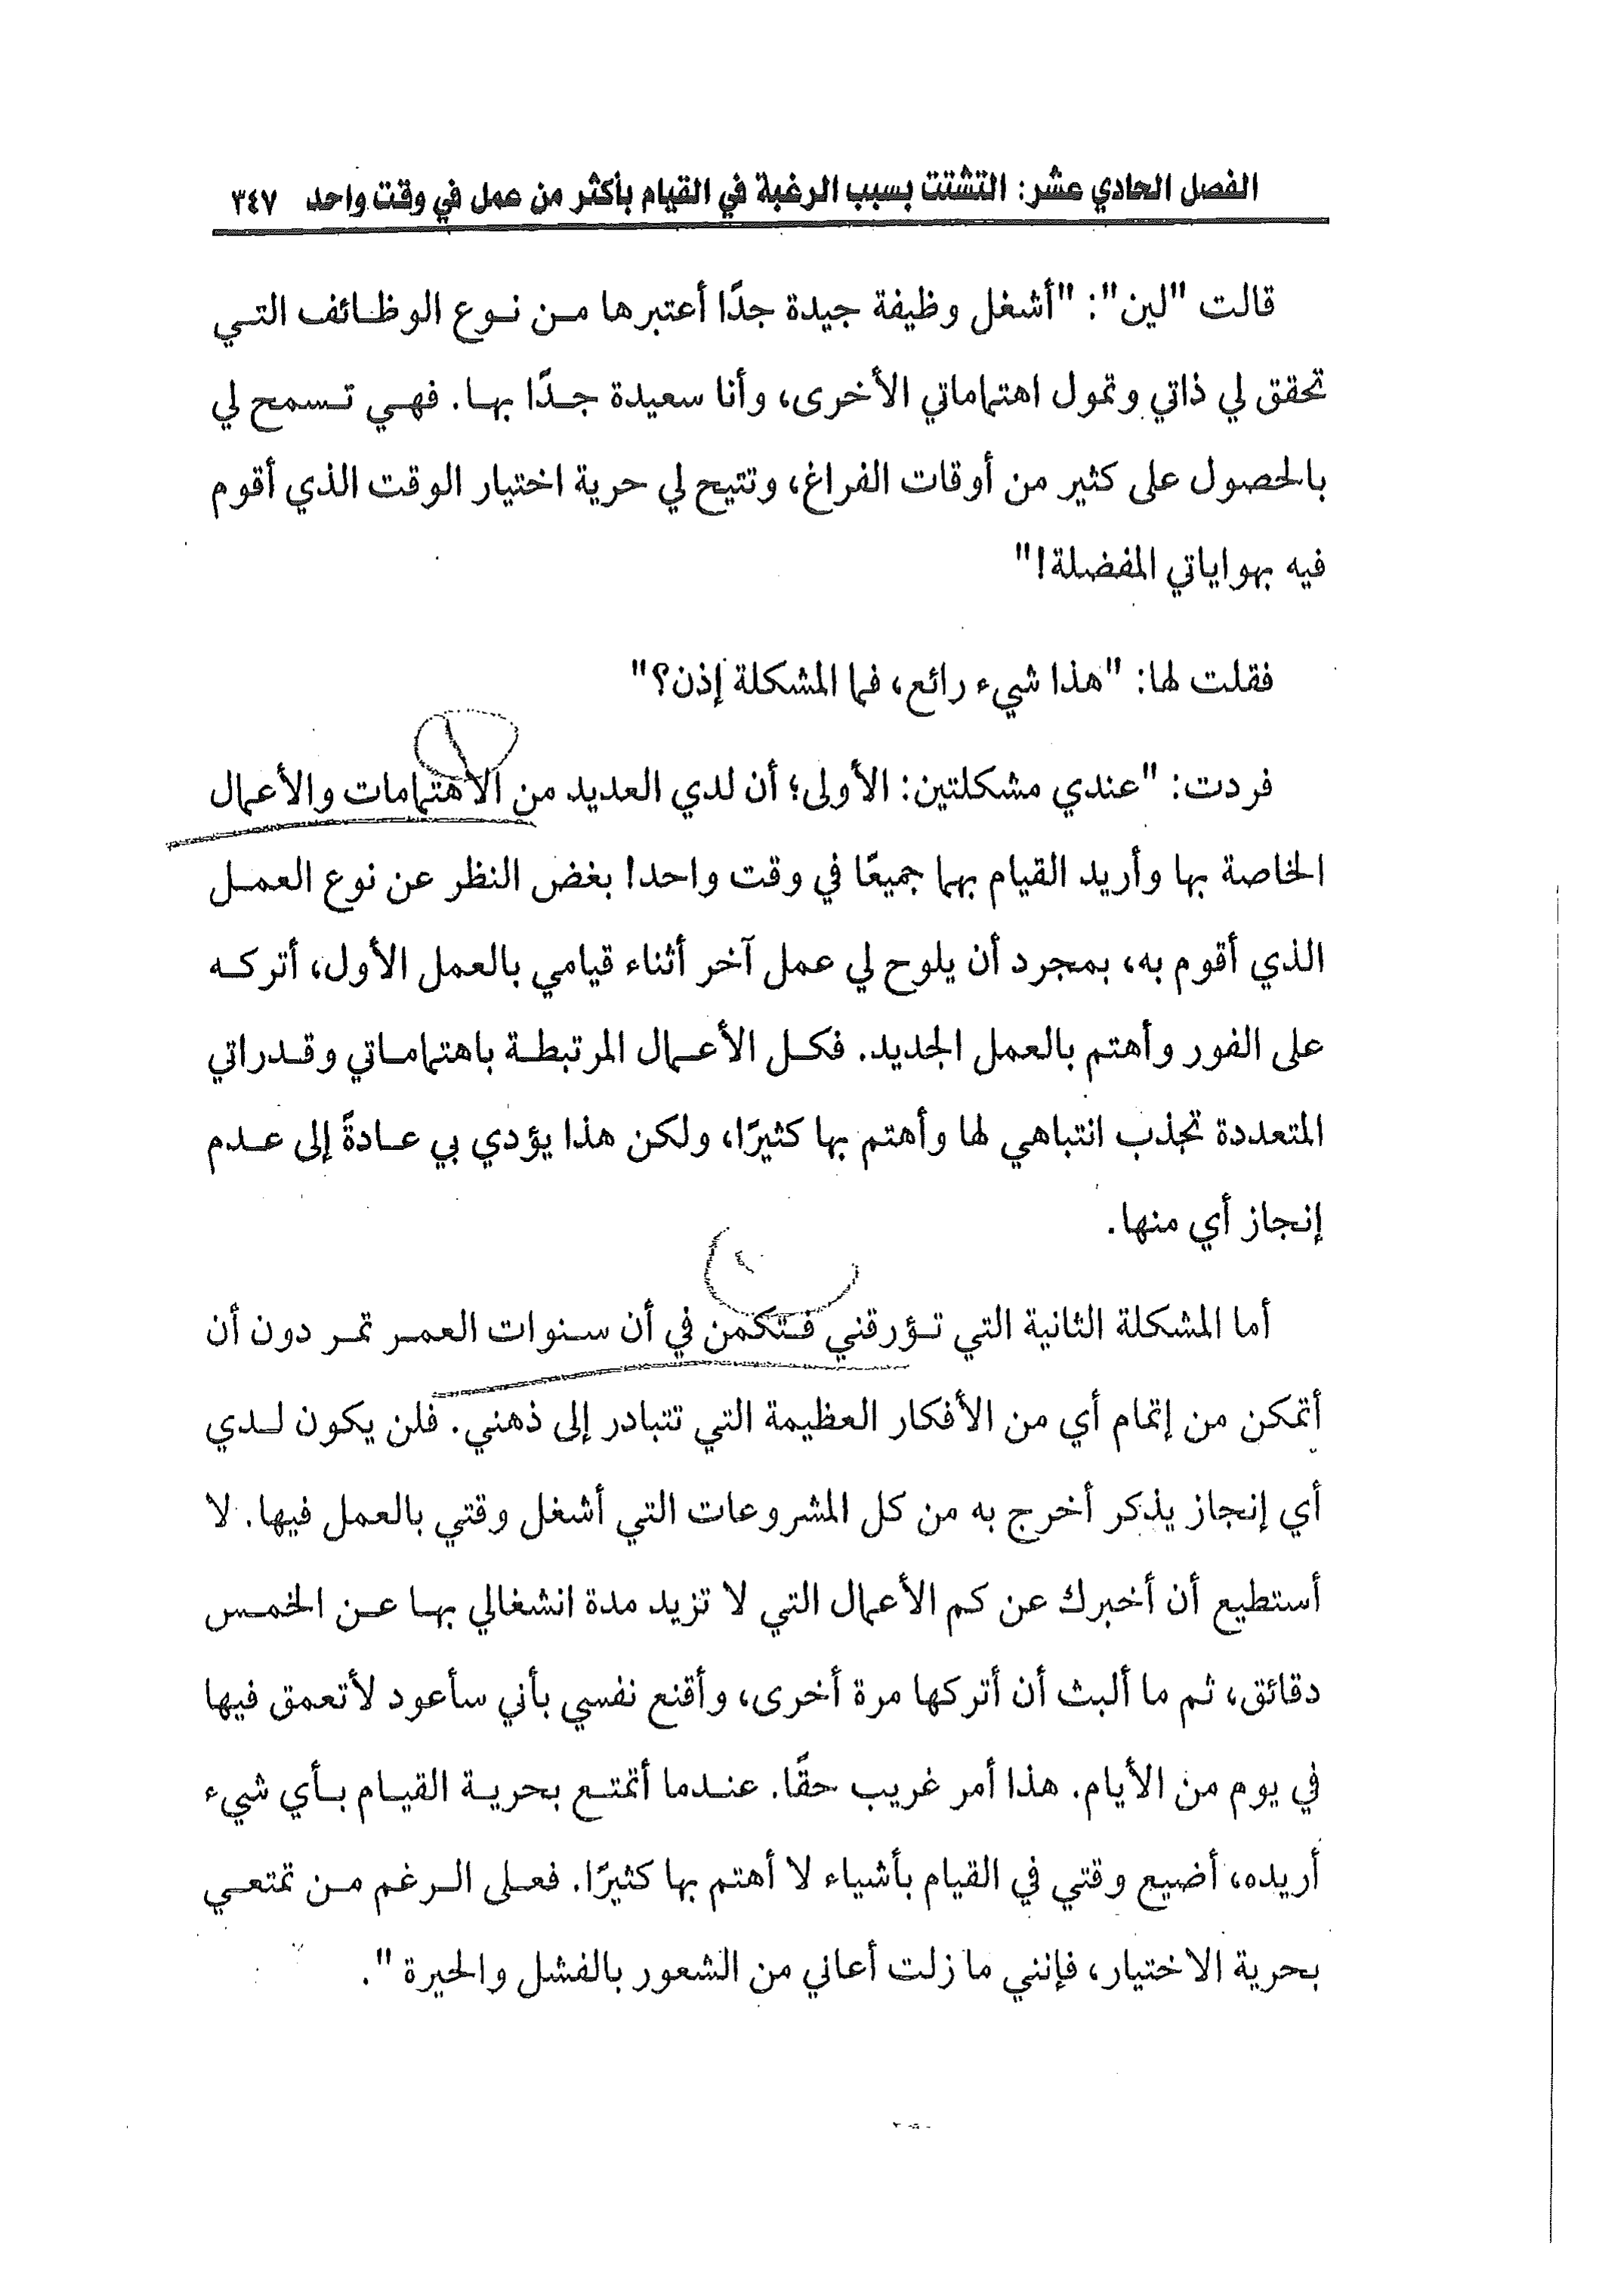 الفصل الحادي عشر: التشتت بسبب الرغبة في القيام بأكثر من عمل في وقت واحد ٣٤٧
قالت "لين": "أشغل وظيفة جيدة جدًا أعتبرها من نوع الوظائف التي
تحقق لي ذاتي وتمول اهتماماتي الأخرى، وأنا سعيدة جدًا بها. فهي تسمح لي
بالحصول على كثير من أوقات الفراغ، وتتيح لي حرية اختيار الوقت الذي أقوم
فيه بهواياتي المفضلة!"
فقلت لها: "هذا شيء رائع، فما المشكلة إذن؟"
فردت: "عندي مشكلتين: الأولى؛ أن لدي العديد من الاهتمامات والأعمال
الخاصة بها وأريد القيام بهما جميعًا في وقت واحد! بغض النظر عن نوع العمل
الذي أقوم به، بمجرد أن يلوح لي عمل آخر أثناء قيامي بالعمل الأول، أتركه
على الفور وأهتم بالعمل الجديد. فكل الأعمال المرتبطة باهتماماتي وقدراتي
المتعددة تجذب انتباهي لها وأهتم بها كثيرًا، ولكن هذا يؤدي بي عادةً إلى عدم
إنجاز أي منها.
أما المشكلة الثانية التي تؤرقني فتكمن في أن سنوات العمر تمر دون أن
أتمكن من إتمام أي من الأفكار العظيمة التي تتبادر إلى ذهني. فلن يكون لدي
أي إنجاز يذكر أخرج به من كل المشروعات التي أشغل وقتي بالعمل فيها. لا
أستطيع أن أخبرك عن كم الأعمال التي لا تزيد مدة انشغالي بها عن الخمس
دقائق، ثم ما ألبث أن أتركها مرة أخرى، وأقنع نفسي بأني سأعود لأتعمق فيها
في يوم من الأيام. هذا أمر غريب حقًا. عندما أتمتع بحرية القيام بأي شيء
أريده، أضيع وقتي في القيام بأشياء لا أهتم بها كثيرًا. فعلى الرغم من تمتعي
بحرية الاختيار، فإنني ما زلت أعاني من الشعور بالفشل والحيرة".